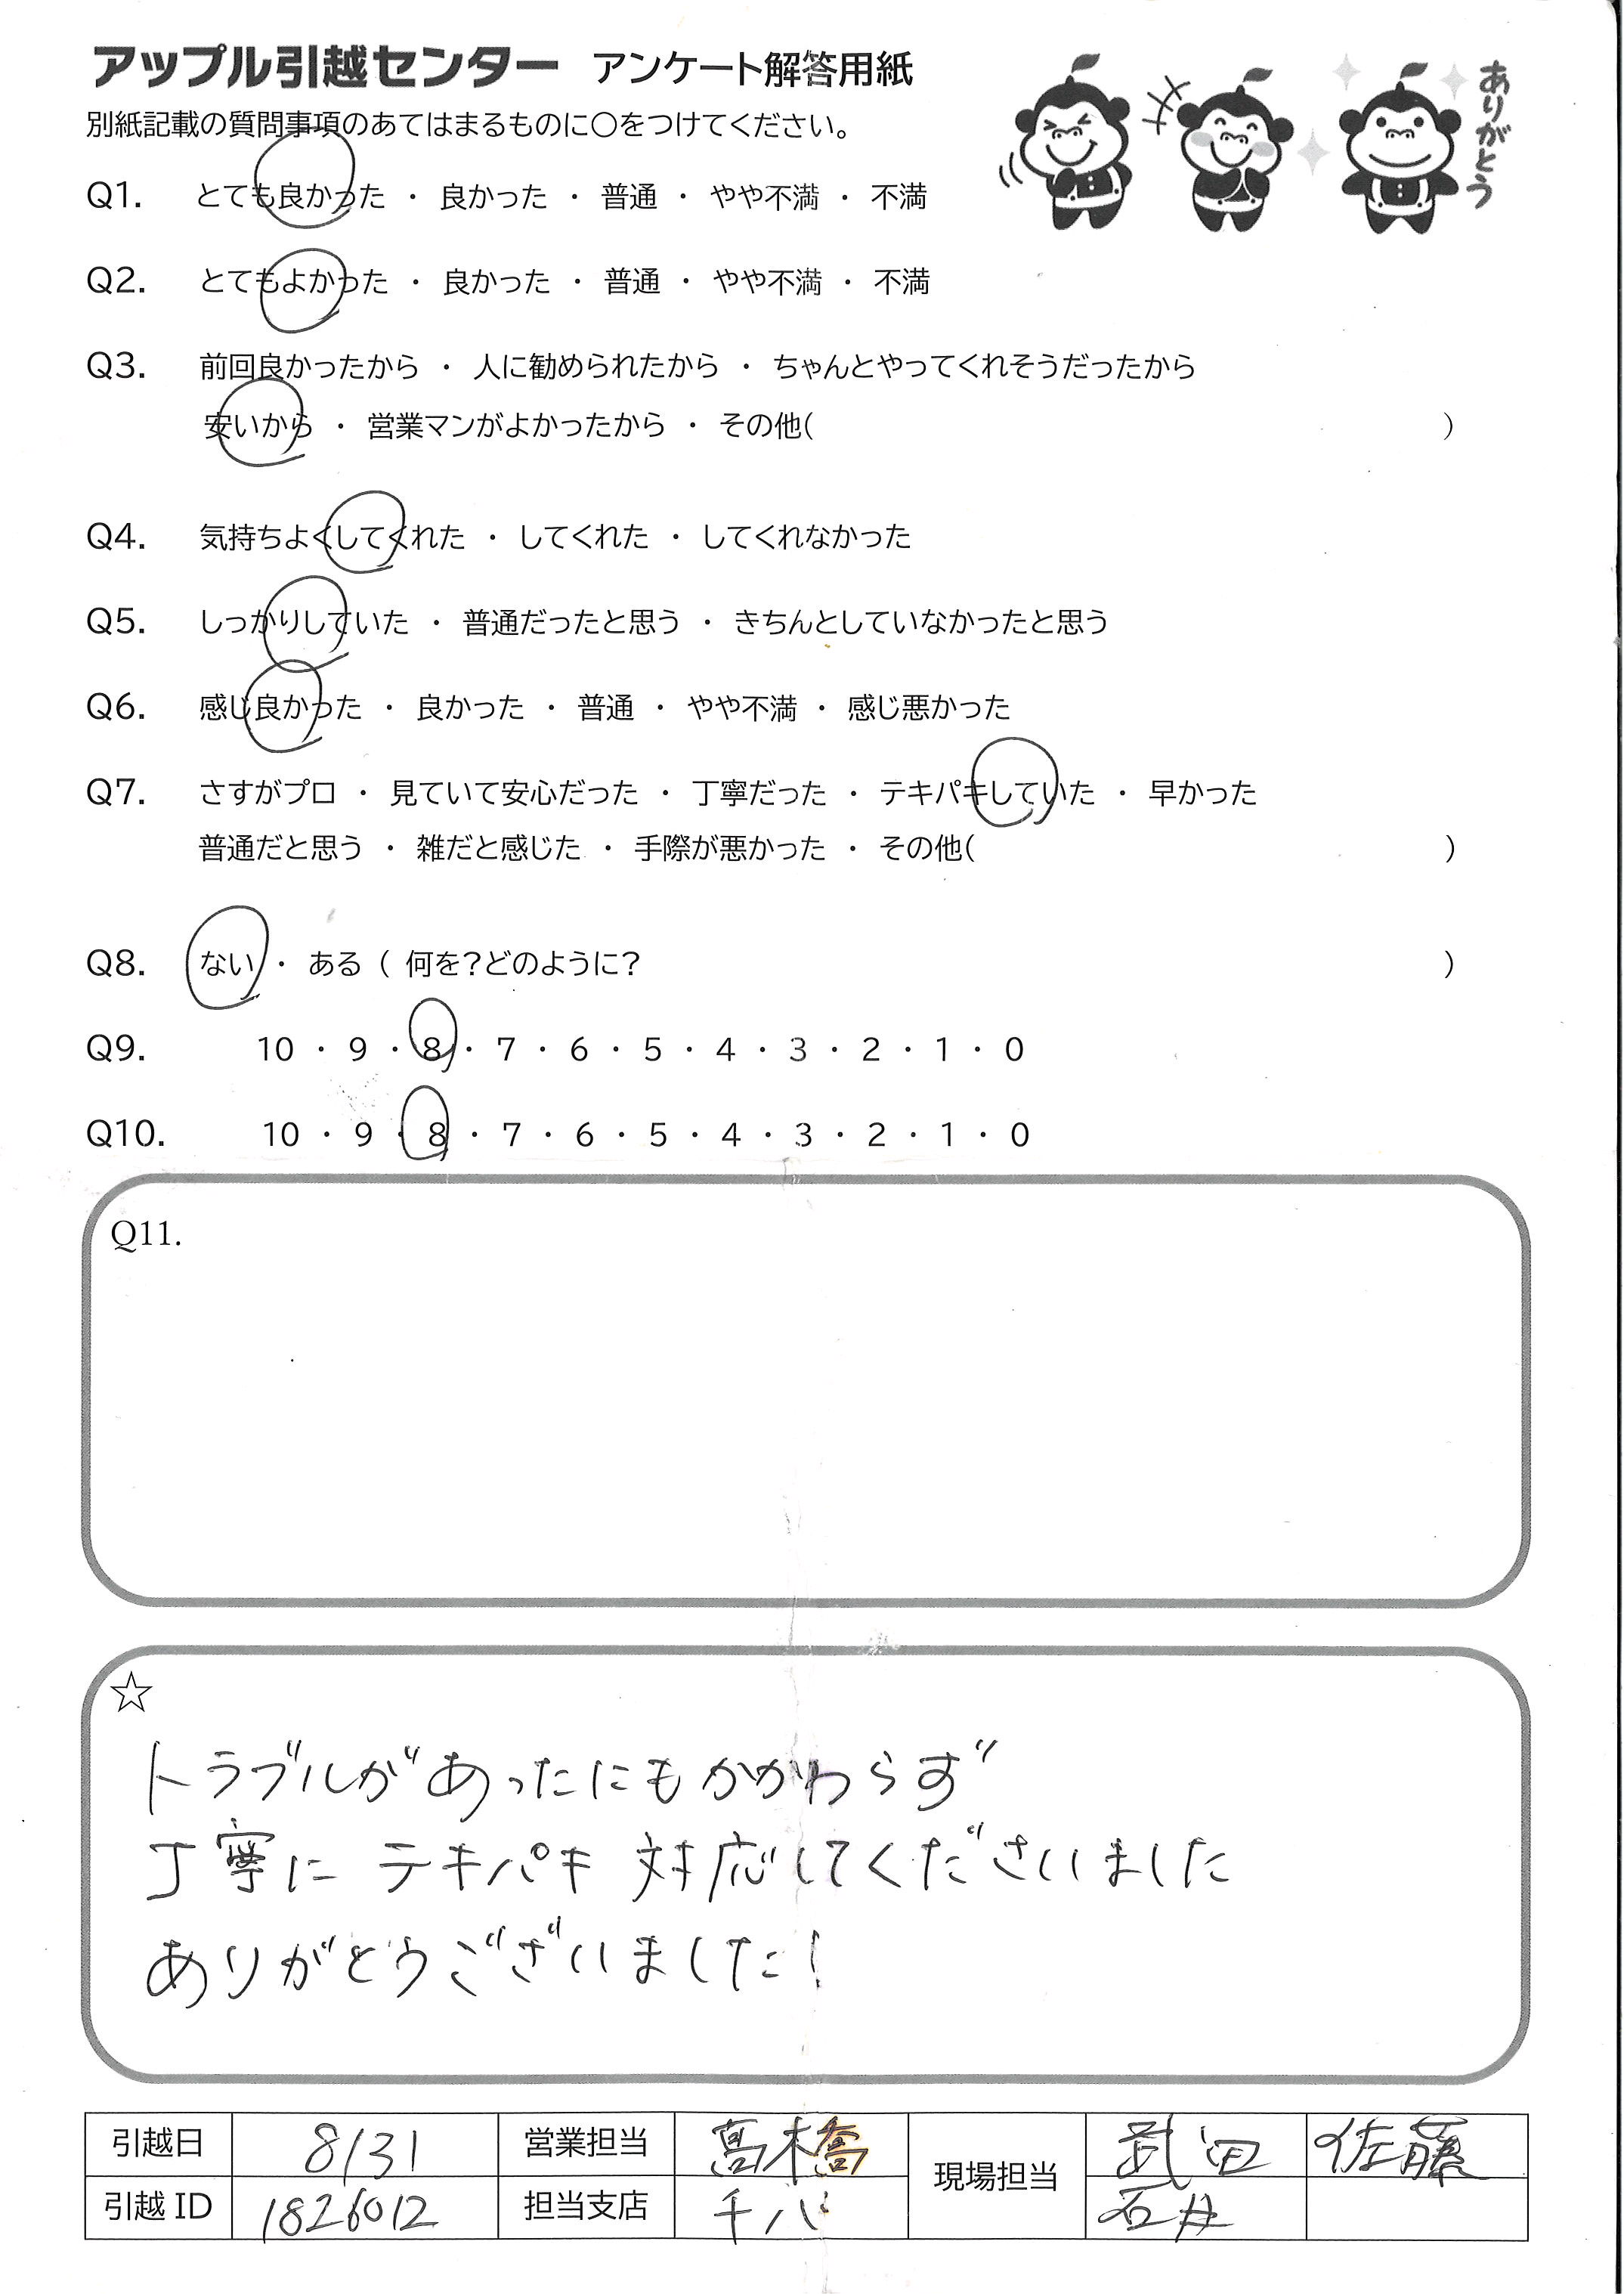 アップル引越センター アンケート解答用紙
ありがとう
別紙記載の質問事項のあてはまるものに○をつけてください。
Q1. とても良かった ・ 良かった ・ 普通 ・ やや不満 ・ 不満
Q2. とてもよかった ・ 良かった ・ 普通 ・ やや不満 ・ 不満
Q3. 前回良かったから ・ 人に勧められたから ・ ちゃんとやってくれそうだったから
安いから ・ 営業マンがよかったから ・ その他( )
Q4. 気持ちよくしてくれた ・ してくれた ・ してくれなかった
Q5. しっかりしていた ・ 普通だったと思う ・ きちんとしていなかったと思う
Q6. 感じ良かった ・ 良かった ・ 普通 ・ やや不満 ・ 感じ悪かった
Q7. さすがプロ ・ 見ていて安心だった ・ 丁寧だった ・ テキパキしていた ・ 早かった
普通だと思う ・ 雑だと感じた ・ 手際が悪かった ・ その他( )
Q8. ない ・ ある ( 何を?どのように? )
Q9. 10 ・ 9 ・ 8 ・ 7 ・ 6 ・ 5 ・ 4 ・ 3 ・ 2 ・ 1 ・ 0
Q10. 10 ・ 9 ・ 8 ・ 7 ・ 6 ・ 5 ・ 4 ・ 3 ・ 2 ・ 1 ・ 0
Q11.
☆
トラブルがあったにもかかわらず
丁寧に テキパキ 対応してくださいました
ありがとうございました!
引越日 8/31 営業担当 髙橋 現場担当 武田 佐藤
引越ID 1826012 担当支店 千バ 石井